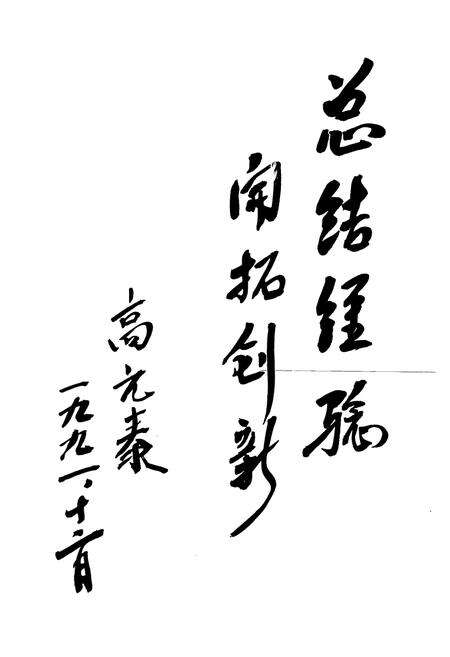 总结经验
开拓创新
高元泰
一九九一、十二月